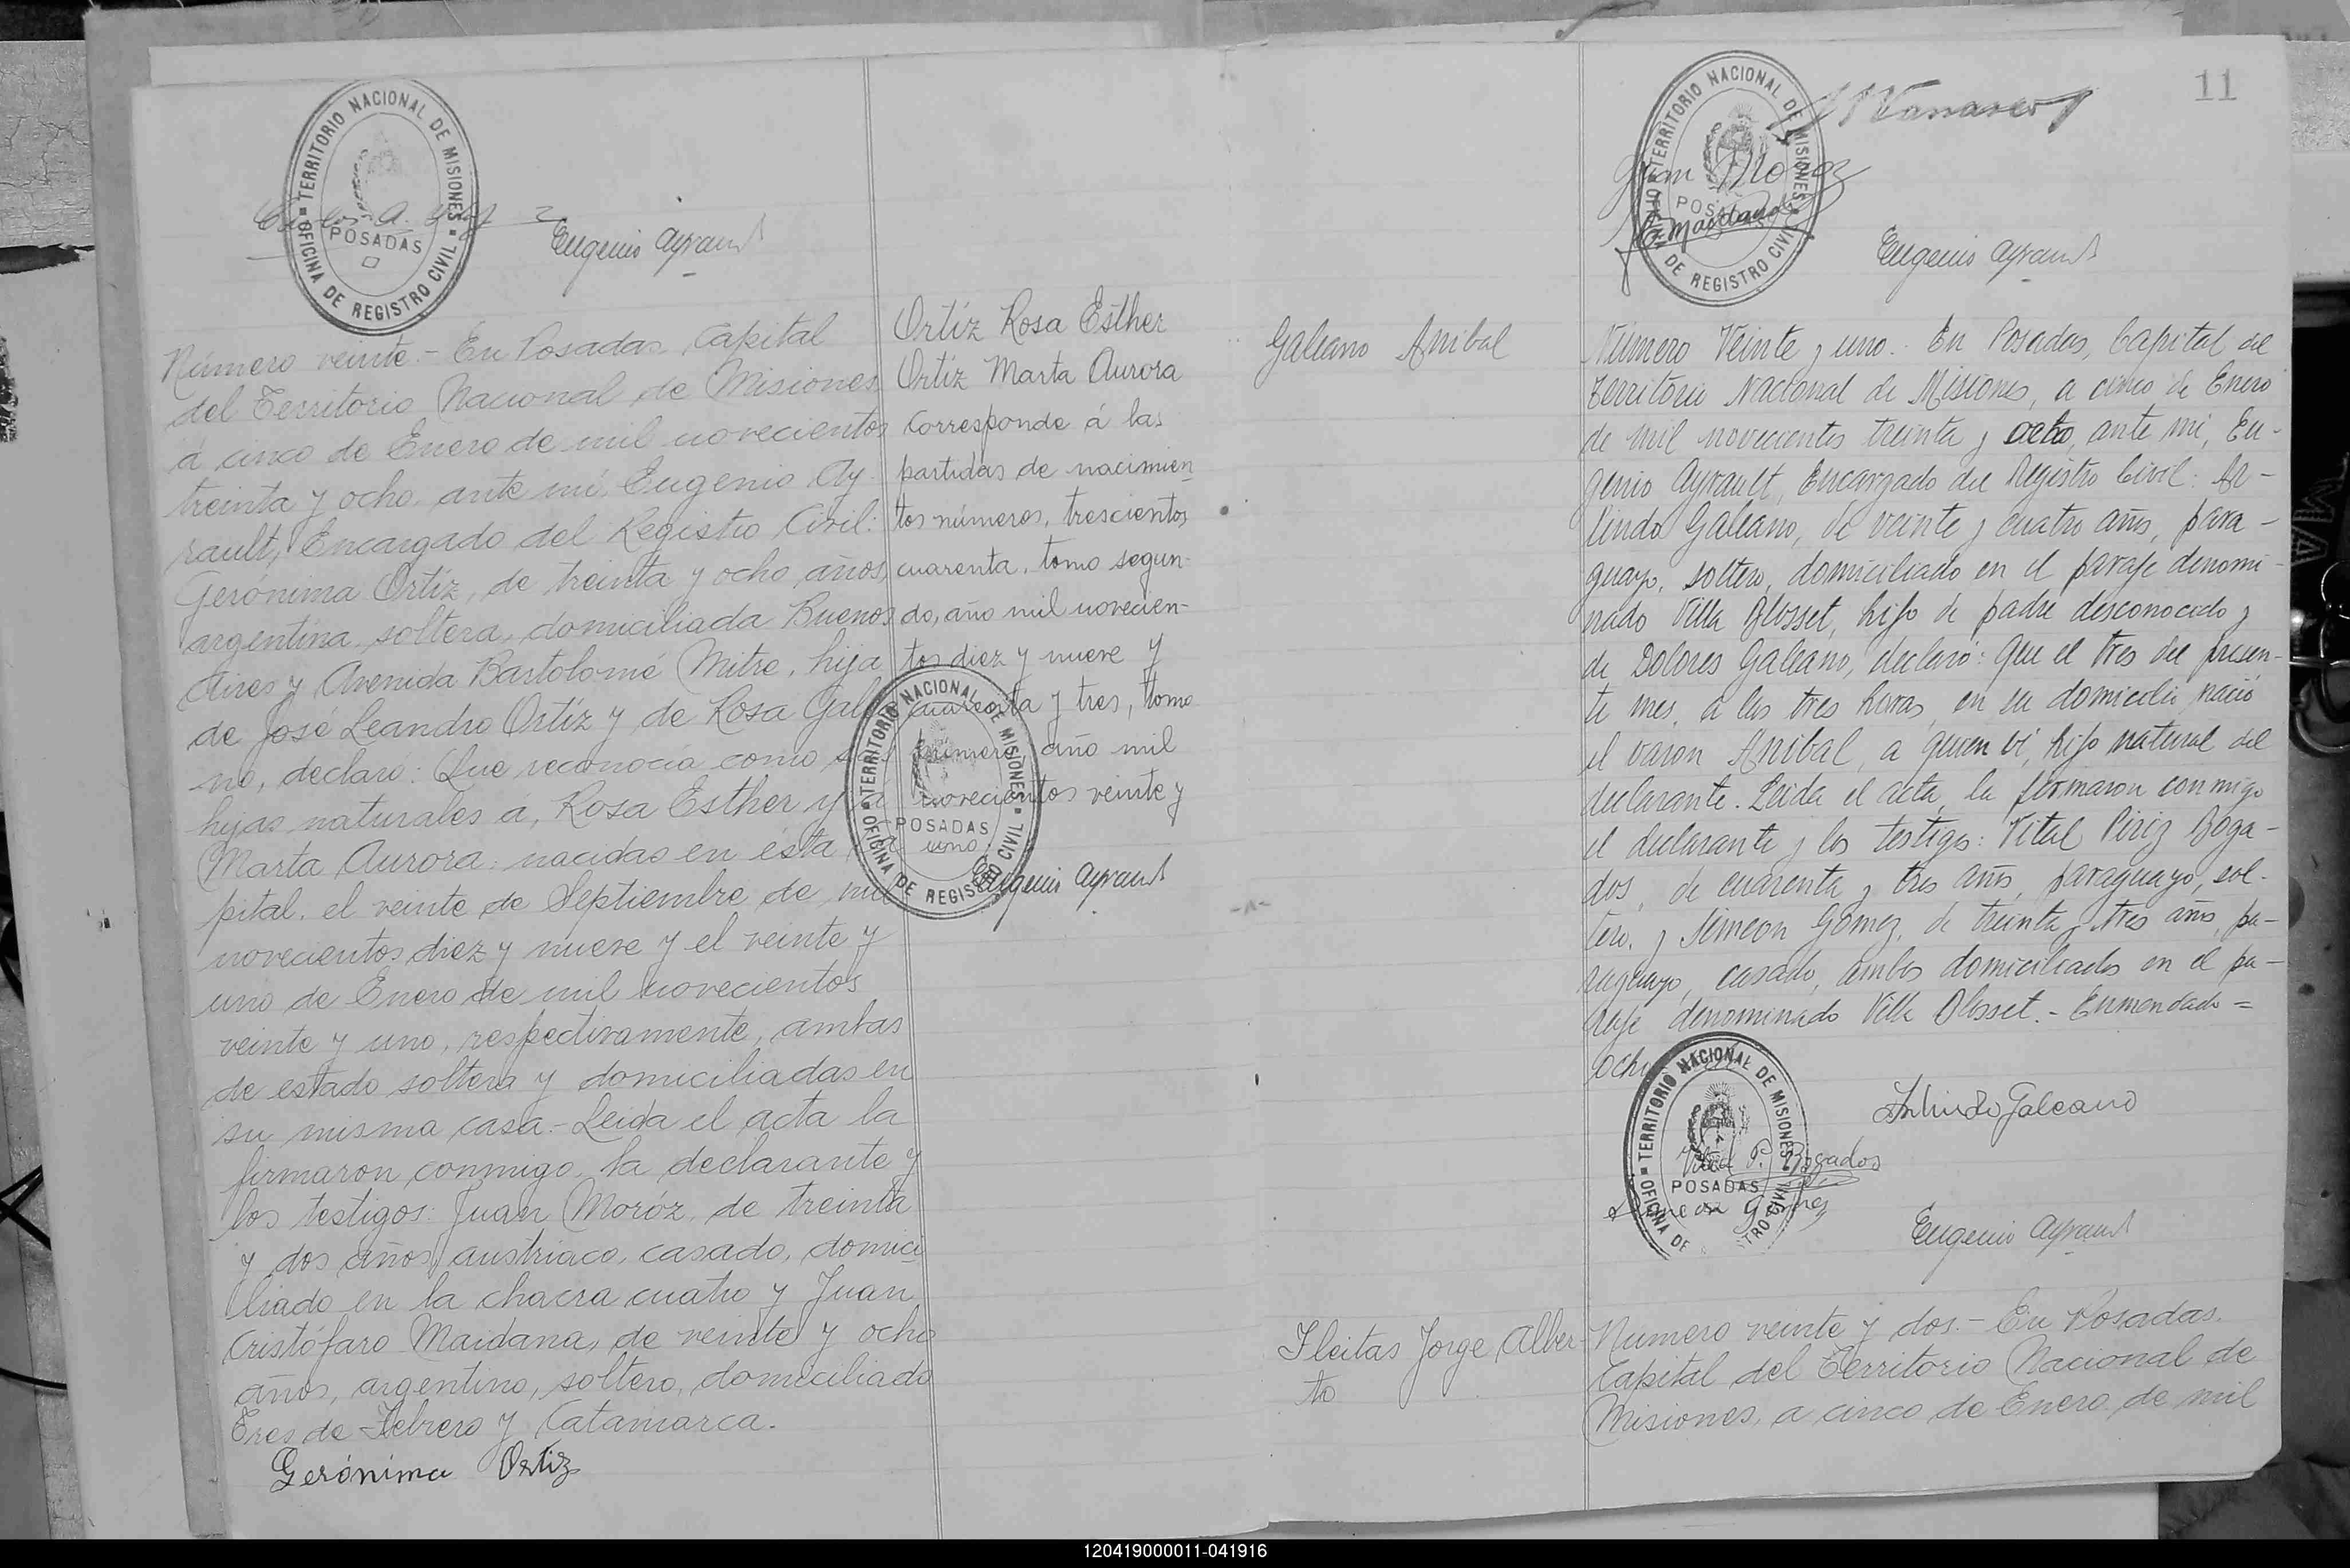 TERRITORIO NACIONAL DE MISIONES
OFICINA DE REGISTRO CIVIL
POSADAS
Eugenio Ayrault
Número veinte.- En Posadas Capital
del Territorio Nacional de Misiones
á cinco de Enero de mil novecientos
treinta y ocho, ante mí, Eugenio Ay-
rault, Encargado del Registro Civil:
Gerónima Ortíz, de treinta y ocho años,
argentina, soltera, domiciliada Buenos
Aires y Avenida Bartolomé Mitre, hija
de José Leandro Ortíz y de Rosa Gali
no, declaró: Que reconocía como sus
hijas naturales á, Rosa Esther y á
Marta Aurora: nacidas en ésta Ca
pital, el veinte de Septiembre de mil
novecientos diez y nueve y el veinte y
uno de Enero de mil novecientos
veinte y uno, respectivamente, ambas
de estado soltera y domiciliadas en
su misma casa.- Leida el acta la
firmaron conmigo, la declarante y
los testigos: Juan Moróz, de treinta
y dos años, austriaco, casado, domici
liado en la chacra cuatro y Juan
Cristófaro Maidana, de veinte y ocho
años, argentino, soltero, domiciliado
Tres de Febrero y Catamarca.
Gerónima Ortiz
Ortíz Rosa Esther
Ortíz Marta Aurora
Corresponde á las
partidas de nacimien
tos números, trescientos
cuarenta, tomo segun-
do, año mil novecien-
tos diez y nueve y
cuarenta y tres, tomo
primero, año mil
novecientos veinte y
uno
TERRITORIO NACIONAL DE MISIONES
OFICINA DE REGISTRO CIVIL
POSADAS
Eugenio Ayrault
11
TERRITORIO NACIONAL DE MISIONES
OFICINA DE REGISTRO CIVIL
POSADAS
Juan Moroz
Maidana
Eugenio Ayrault
Galeano Anibal
Número Veinte y uno.- En Posadas, Capital del
Territorio Nacional de Misiones, a cinco de Enero
de mil novecientos treinta y ocho, ante mi, Eu-
genio Ayrault, Encargado del Registro Civil: Ar-
lindo Galeano, de veinte y cuatro años, para-
guayo, soltero, domiciliado en el paraje denomi-
nado Villa Blosset, hijo de padre desconocido y
de Dolores Galeano, declaró: Que el tres del presen-
te mes, a las tres horas, en su domicilio nació
el varon Anibal, a quien ví, hijo natural del
declarante. Leida el acta, la firmaron conmigo
el declarante y los testigos: Vital Piriz Boga-
dos, de cuarenta y tres años, paraguayo, sol-
tero, y Simeon Gómez, de treinta y tres años, pa-
raguayo, casado, ambos domiciliados en el pa-
raje denominado Villa Blosset.- Enmendado =
ocho
TERRITORIO NACIONAL DE MISIONES
OFICINA DE REGISTRO CIVIL
POSADAS
Arlindo Galeano
Vital P. Bogados
Simeon Gomez
Eugenio Ayrault
Fleitas Jorge Alber-
to
Número veinte y dos.- En Posadas,
Capital del Territorio Nacional de
Misiones, a cinco de Enero de mil
120419000011-041916